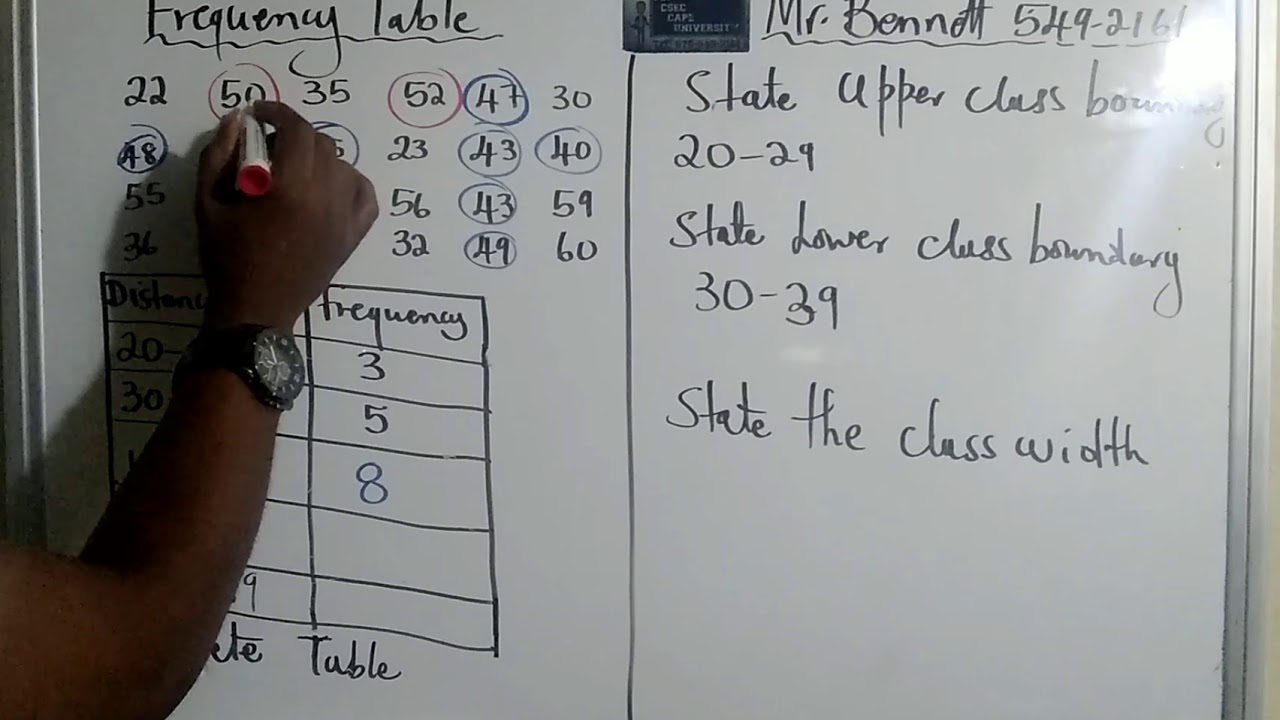 Frequency Table
22 50 35 52 47 30
48 23 43 40
55 56 43 59
36 32 49 60
Frequency
20-
3
30
5
8
9
Table
CSEC
CAPE
UNIVERSITY
Mr. Bennett 549-2161
State Upper class
20-29
State Lower class boundary
30-39
State the class width